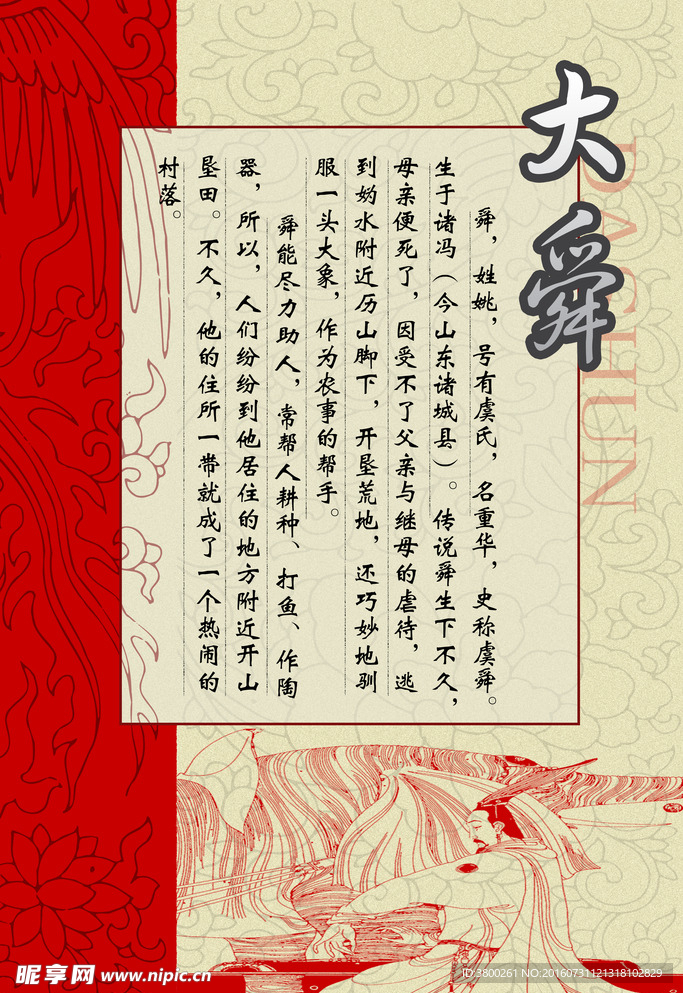 大舜
DASHUN
舜，姓姚，号有虞氏，名重华，史称虞舜。
生于诸冯（今山东诸城县）。传说舜生下不久，
母亲便死了，因受不了父亲与继母的虐待，逃
到妫水附近历山脚下，开垦荒地，还巧妙地驯
服一头大象，作为农事的帮手。
舜能尽力助人，常帮人耕种、打鱼、作陶
器，所以，人们纷纷到他居住的地方附近开山
垦田。不久，他的住所一带就成了一个热闹的
村落。
昵享网 www.nipic.cn
ID:3800261 NO:20160731121318102829